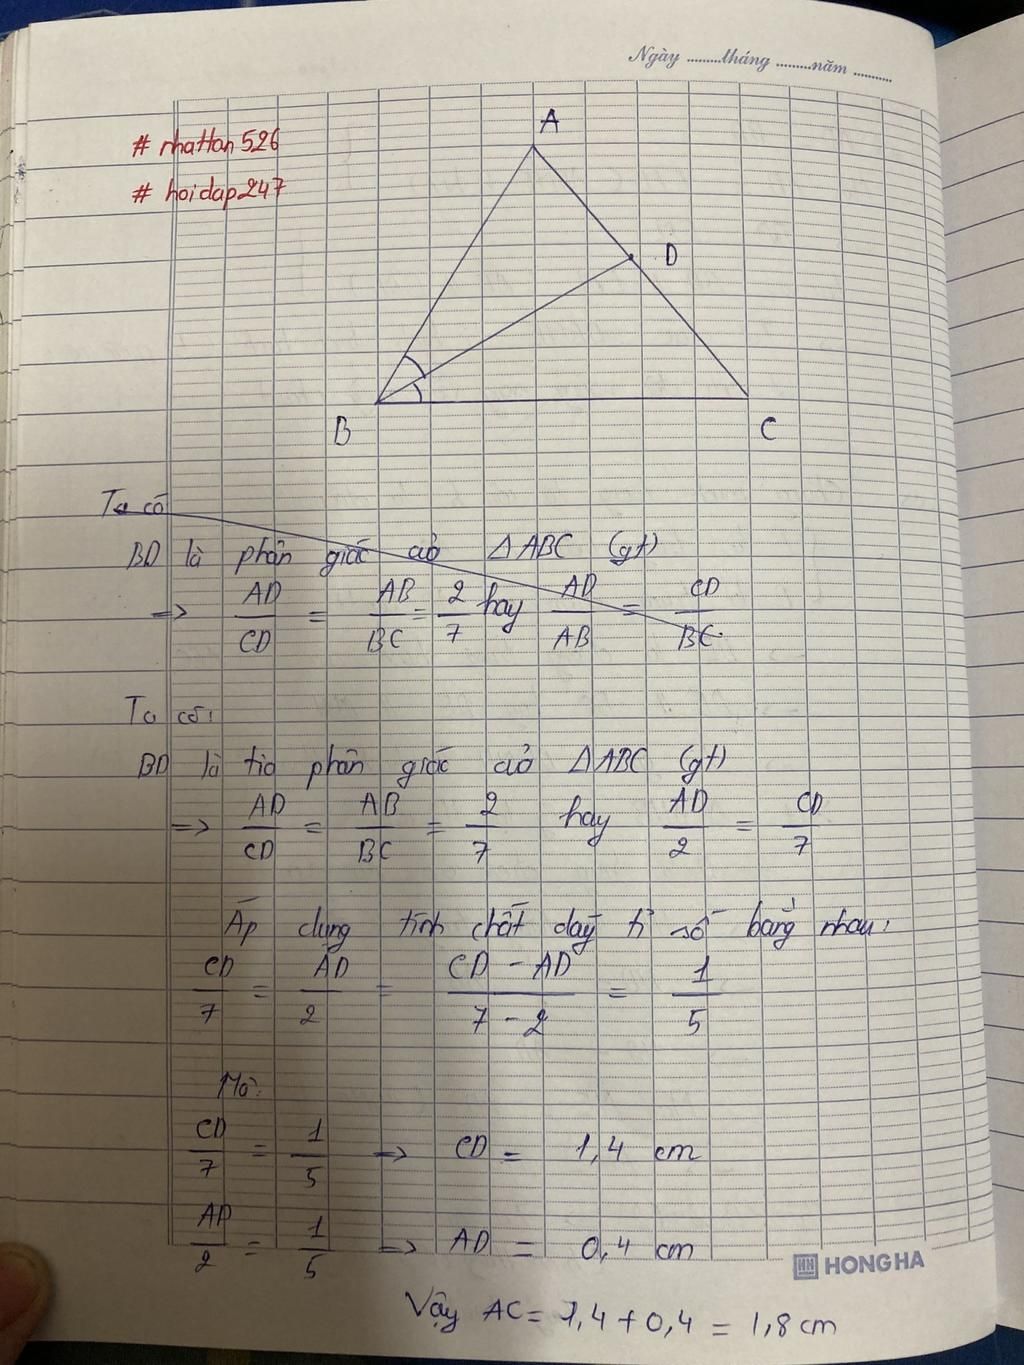 Ngày ........tháng ........năm .........
# nhattan526
# hoidap247
A
D
B
C
Ta có
BD là phân giác củả ΔABC (gt)
=> AD/CD = AB/BC = 2/7 hay AD/AB = CD/BC
Ta có:
BD là tia phân giác củả ΔABC (gt)
=> AD/CD = AB/BC = 2/7 hay AD/2 = CD/7
Áp dụng tính chất dãy tỉ số bằng nhau:
CD/7 = AD/2 = CD - AD/7 - 2 = 1/5
Mà:
CD/7 = 1/5 => CD = 1,4 cm
AD/2 = 1/5 => AD = 0,4 cm
HONG HA
Vậy AC = 1,4 + 0,4 = 1,8 cm